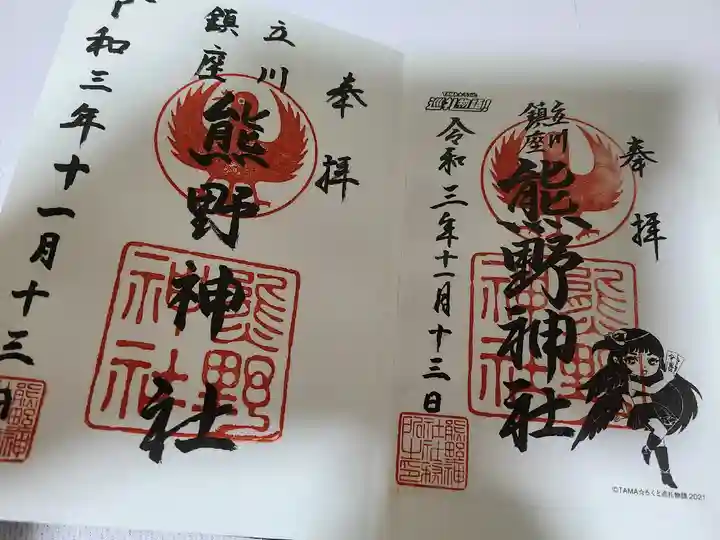 奉拝
立川
鎮座
熊野神社
和三年十一月十三日
熊野
神社
奉拝
立川
鎮座
熊野神社
令和三年十一月十三日
熊野
神社
巡礼物語!
©TAMA☆らくと巡礼物語 2021